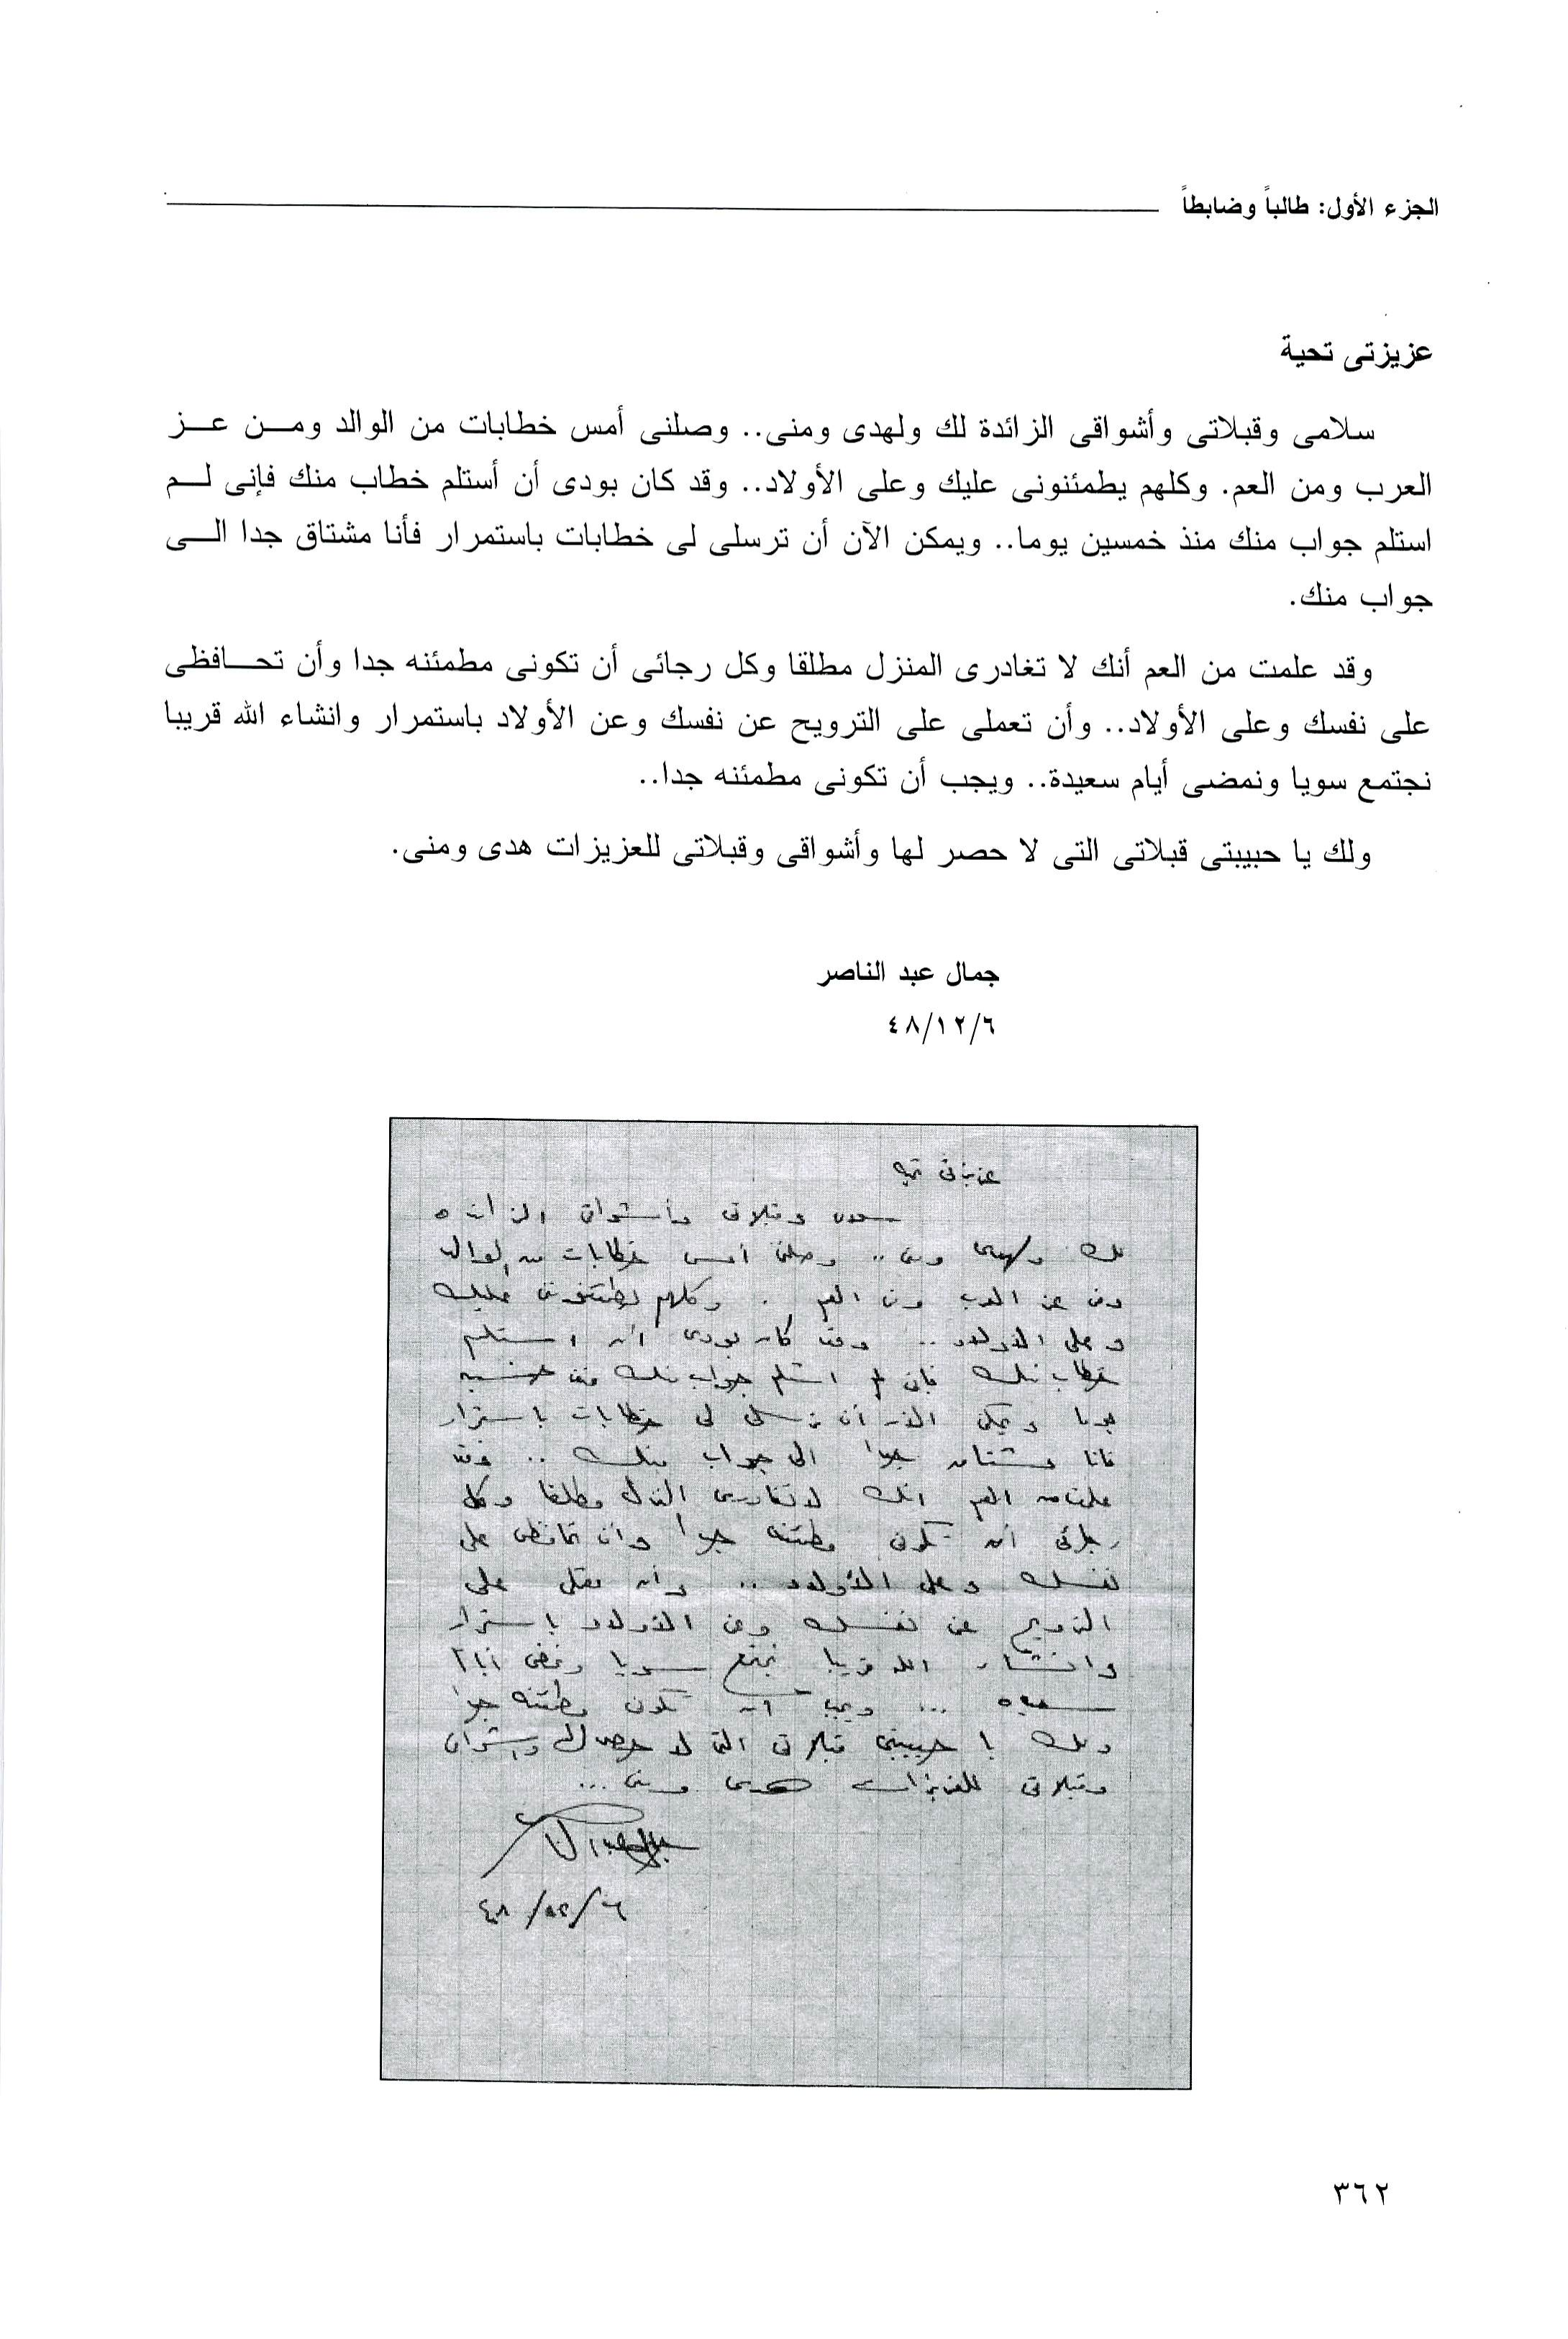 الجزء الأول: طالباً وضابطاً
عزيزتى تحية
سلامى وقبلاتى وأشواقى الزائدة لك ولهدى ومنى.. وصلنى أمس خطابات من الوالد ومن عز
العرب ومن العم. وكلهم يطمئنونى عليك وعلى الأولاد.. وقد كان بودى أن أستلم خطاب منك فإنى لم
استلم جواب منك منذ خمسين يوما.. ويمكن الآن أن ترسلى لى خطابات باستمرار فأنا مشتاق جدا الى
جواب منك.
وقد علمت من العم أنك لا تغادرى المنزل مطلقا وكل رجائى أن تكونى مطمئنه جدا وأن تحافظى
على نفسك وعلى الأولاد.. وأن تعملى على الترويح عن نفسك وعن الأولاد باستمرار وانشاء الله قريبا
نجتمع سويا ونمضى أيام سعيدة.. ويجب أن تكونى مطمئنه جدا..
ولك يا حبيبتى قبلاتى التى لا حصر لها وأشواقى وقبلاتى للعزيزات هدى ومنى.
جمال عبد الناصر
٤٨/١٢/٦
عزيزتى تحيه
سلامى وقبلاتى وأشواقى الزائده
لك ولهدى ومنى .. وصلنى أمس خطابات من الوالد
ومن عز العرب ومن العم . وكلهم يطمئنونى عليك
وعلى الأولاد .. وقد كان بودى أن استلم
خطاب منك فإنى لم استلم جواب منك منذ خمسين
يوما ويمكن الآن أن ترسلى لى خطابات باستمرار
فانا مشتاق جدا الى جواب منك .. وقد
علمت من العم انك لا تغادرى المنزل مطلقا وكل
رجائى أن تكونى مطمئنه جدا وأن تحافظى على
نفسك وعلى الأولاد .. وأن تعملى على
الترويح عن نفسك وعن الأولاد باستمرار
وانشاء الله قريبا نجتمع سويا ونمضى أيام
سعيده ... ويجب أن تكونى مطمئنه جدا
ولك يا حبيبتى قبلاتى التى لا حصر لها واشواقى
وقبلاتى للعزيزات هدى ومنى ...
جمال عبد الناصر
٤٨/١٢/٦
٣٦٢